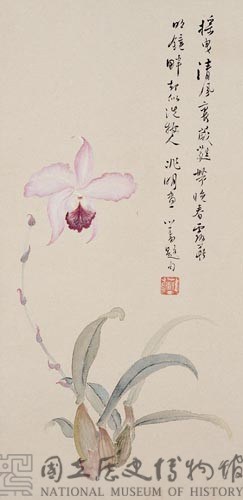 搖曳清風裏葳蕤帶晚春露華
明鏡畔却似洗妝人 兆明畫 心畬題句
國立歷史博物館
NATIONAL MUSEUM OF HISTORY